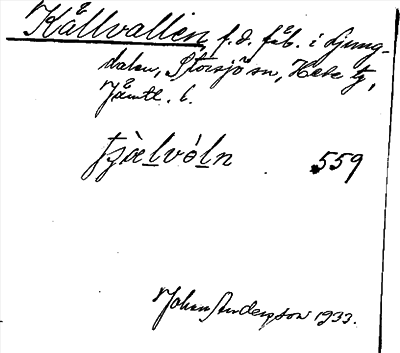 Kållvallen, f.d. fäb. i Ljung-
dalen, Storsjö sn, Hede tg,
Jämtl. l.
tʒæ̀lvóln 559
Johan Anderson 1933.